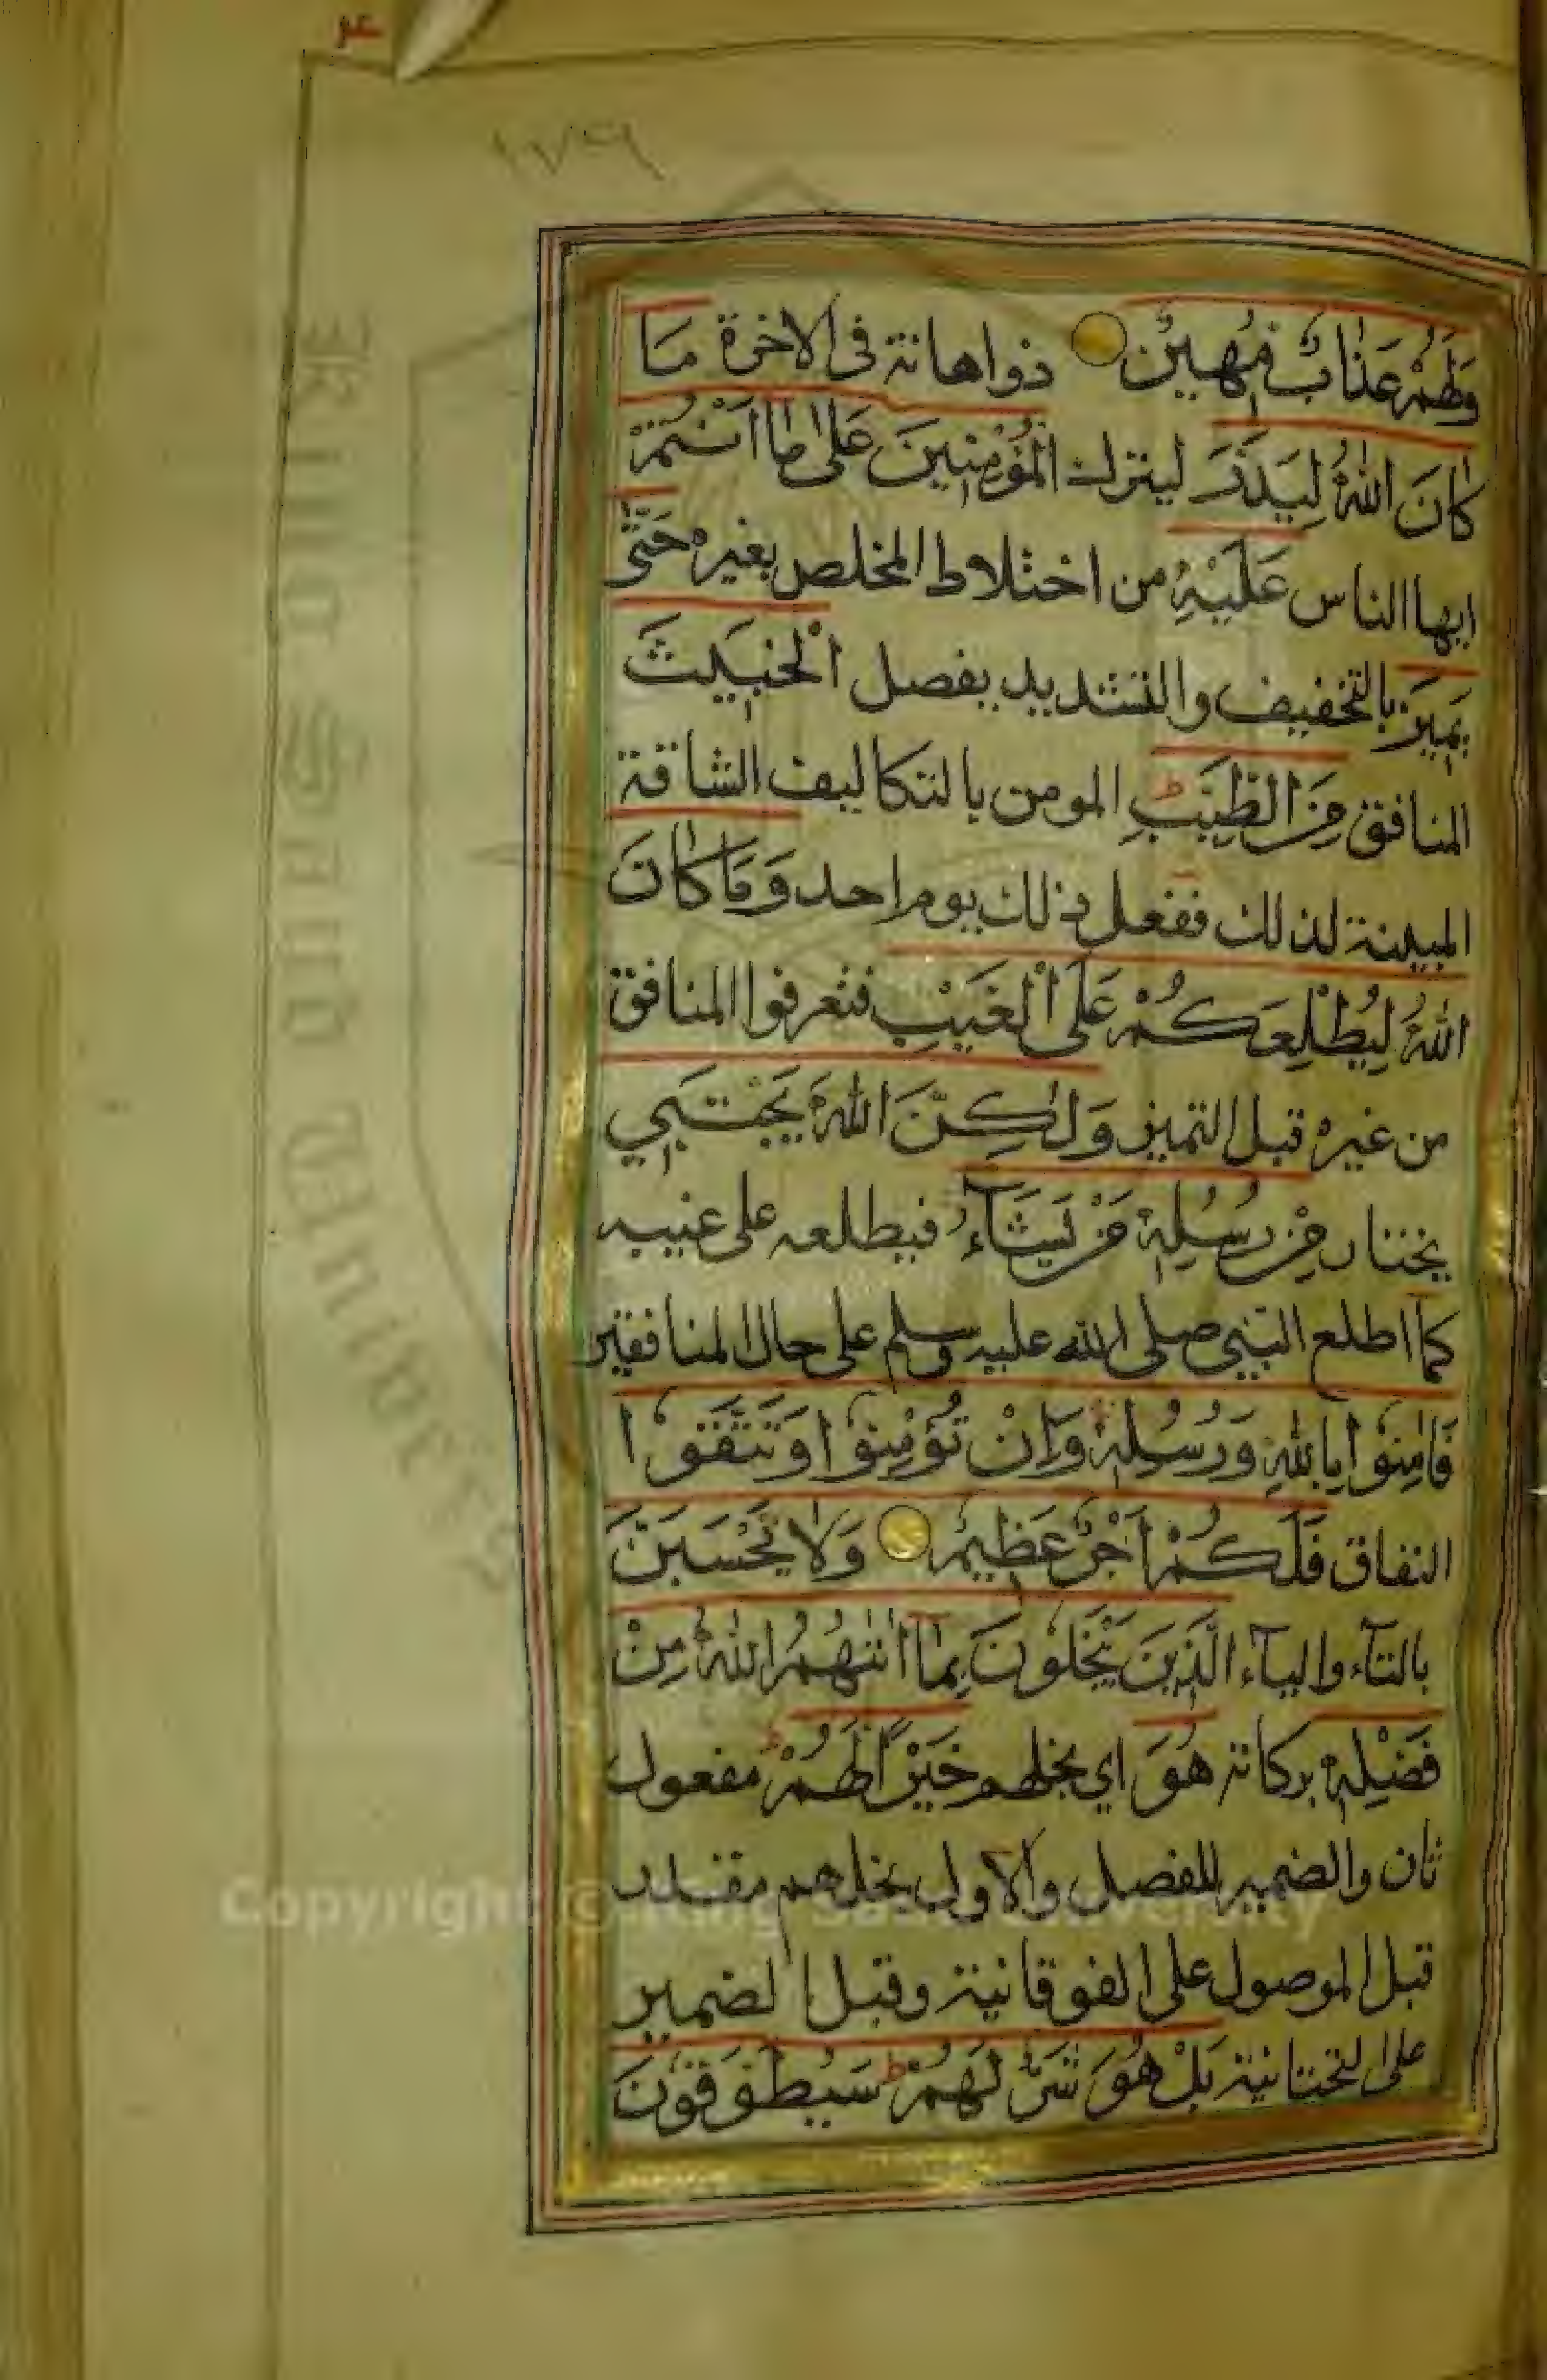 ٤
١٧٩
وَلَهُمْ عَذَابٌ مُهِينٌ ذواهانة فى الاخرة مَا
كَانَ اللّٰهُ لِيَذَرَ ليترك الْمُؤْمِنِينَ عَلٰى مَا اَنْتُمْ
ايها الناس عَلَيْهِ من اختلاط المخلص بغيره حَتّٰى
يَمِيزَ بالتخفيف والتشديد يفصل الْخَبِيثَ
المنافق مِنَ الطَّيِّبِ ط المومن بالتكاليف الشاقة
المبينة لذلك ففعل ذلك يوم احد وَمَا كَانَ
اللّٰهُ لِيُطْلِعَكُمْ عَلَى الْغَيْبِ فتعرفوا المنافق
من غيره قبل التميز وَلٰكِنَّ اللّٰهَ يَجْتَبِي
يختار مِنْ رُسُلِهٖ مَنْ يَشَآءُ فيطلعه على غيبه
كما اطلع النبي صلى الله عليه وسلم على حال المنافقين
فَاٰمِنُوْا بِاللّٰهِ وَرُسُلِهٖ وَاِنْ تُؤْمِنُوْا وَتَتَّقُوْا
النفاق فَلَكُمْ اَجْرٌ عَظِيمٌ وَلَا تَحْسَبَنَّ
بالتآء واليآء الَّذِينَ يَبْخَلُونَ بِمَا اٰتٰهُمُ اللّٰهُ مِنْ
فَضْلِهٖ بزكاته هُوَ اي بخلهم خَيْرًا لَهُمْ ط مفعول
ثان والضمير للفصل والاول بخلهم مقدر
قبل الموصول على الفوقانية وقبل الضمير
على التحتانية بَلْ هُوَ شَرٌّ لَهُمْ ط سَيُطَوَّقُوْنَ
King Saud University
Copyright © King Saud University